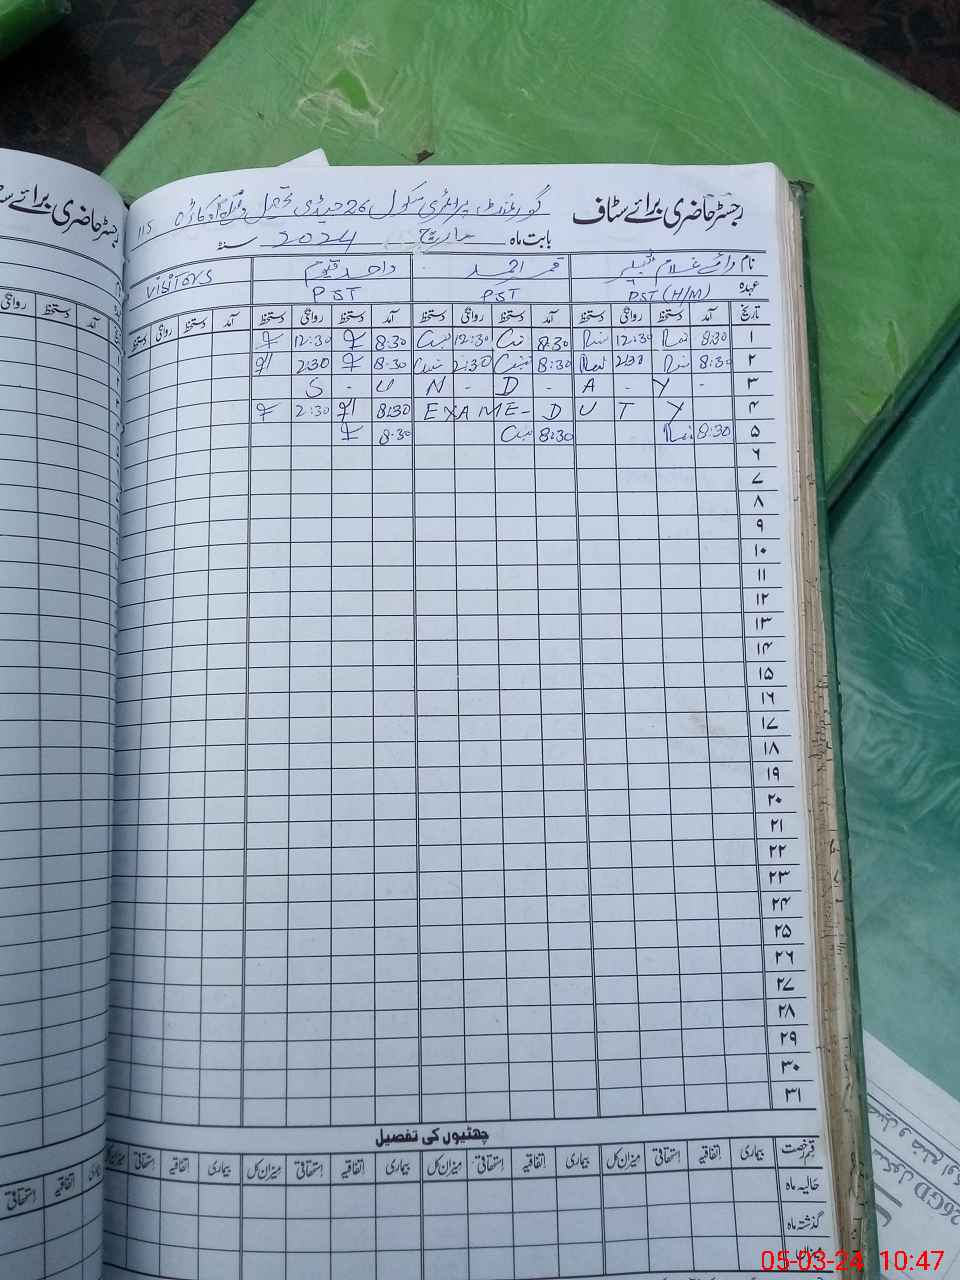 رجسٹر حاضری برائے سٹاف
گورنمنٹ پرائمری سکول 26 جیڈی تحصیل و ضلع اوکاڑہ
115
بابت ماہ مارچ سنہ 2024
نام رائے غلام شبیر قمر احمد واحد قیوم VISITORS
عہدہ PST (H/M) PST PST
تاریخ آمد دستخط روانگی دستخط آمد دستخط روانگی دستخط آمد دستخط روانگی دستخط آمد دستخط روانگی دستخط
۱ 8:30 12:30 8:30 12:30 8:30 12:30
۲ 8:30 2:30 8:30 2:30 8:30 2:30
۳ S - U N - D - A - Y -
۴ EXAME - DUTY 8:30 2:30
۵ 8:30 8:30 8:30
۶
۷
۸
۹
۱۰
۱۱
۱۲
۱۳
۱۴
۱۵
۱۶
۱۷
۱۸
۱۹
۲۰
۲۱
۲۲
۲۳
۲۴
۲۵
۲۶
۲۷
۲۸
۲۹
۳۰
۳۱
چھٹیوں کی تفصیل
قسم رخصت بیماری اتفاقیہ استحقاقی میزان کل بیماری اتفاقیہ استحقاقی میزان کل بیماری اتفاقیہ استحقاقی میزان کل بیماری اتفاقیہ استحقاقی میزان کل
حالیہ ماہ
گذشتہ ماہ
میزان
رجسٹر حاضری برائے
آمد دستخط روانگی
اتفاقیہ استحقاقی
26GD
05-03-24 10:47